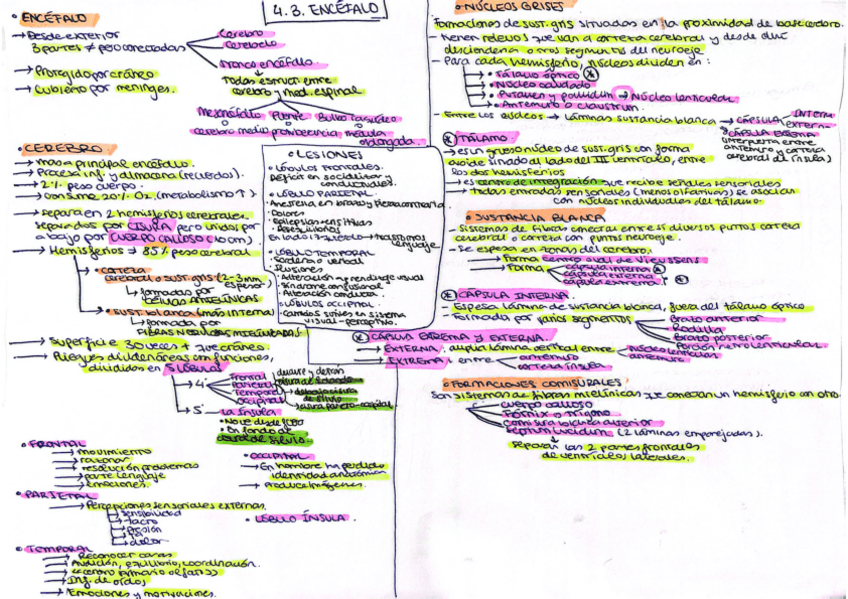 4.3. ENCÉFALO
• ENCÉFALO
→ Desde exterior
3 partes ≠ pero conectadas
Cerebro
Cerebelo
Tronco encéfalo
Todas estruct. entre
cerebro y med. espinal
Mesencéfalo Puente Bulbo raquídeo
cerebro medio protuberancia médula
oblongada.
→ Protegido por cráneo
→ Cubierto por meninges.
• CEREBRO
→ masa principal encéfalo.
→ Procesa inf. y almacena (recuerdos).
→ 2% peso cuerpo.
→ Consume 20% O2. (metabolismo ↑)
→ separa en 2 hemisferios cerebrales.
separados por CISURA pero unidos por
abajo por CUERPO CALLOSO (10cm)
→ Hemisferios → 85% peso cerebral
• corteza
cerebral o sust. gris (2-3mm espesor)
→ formadas por
CÉLULAS PIRAMIDALES
• Sust. blanca (más interna)
→ formada por
FIBRAS NERVIOSAS MIELINIZADAS
→ superficie 30 veces + que cráneo.
→ Pliegues dividen áreas con funciones,
divididos en 5 LÓBULOS
→ 4:
Frontal
Parietal
Temporal
Occipital
delante y detrás
cisura de Rolando
debajo cisura
de Silvio
cisura parieto-occipital
→ 5º La ínsula
• No ve desde fuera
• En fondo de
cisura de Silvio.
• FRONTAL
→ movimiento
→ razonar
→ resolución problemas
→ parte lenguaje
→ emociones.
• PARIETAL
→ Percepciones sensoriales externas.
→ sensibilidad
→ tacto
→ presión
→ Tª
→ dolor
• TEMPORAL
→ Reconocer caras
→ Audición, equilibrio, coordinación.
→ centro primario olfato
→ Inf. de oídos
→ Emociones y motivaciones.
• OCCIPITAL
→ En hombre ha perdido
identidad anatómica
→ produce imágenes.
• LÓBULO ÍNSULA.
• LESIONES
• LÓBULOS FRONTALES.
Déficit en sociabilizar y
conductuales.
• LÓBULO PARIETAL.
• Anestesia en brazo y pierna contraria.
• Dolores
• Epilepsias sensitivas
• Desequilibrios
En lado izquierdo → trastornos
lenguaje.
• LÓBULO TEMPORAL
• Sordera o verbal
• Ilusiones
• Alteración aprendizaje visual
• Síndrome confusional
• Alteración conducta
• LÓBULOS OCCIPITAL
• Cambios sutiles en sistema
visual-perceptivo.
• NÚCLEOS GRISES
Formaciones de sust. gris situados en la proximidad de base cerebro.
- Tienen relevos que van a corteza cerebral y desde allí
descienden a otros segmentos del neuroeje
- Para cada hemisferio, núcleos dividen en:
• Tálamo óptico *
• Núcleo caudado
• Putamen y pallidum → Núcleo lenticular
• Antemuro o claustrum.
- Entre los núcleos → láminas sustancia blanca → CÁPSULA INTERNA
EXTERNA
→ CÁPSULA EXTREMA
(interpuesta entre
antemuro y corteza
cerebral de ínsula)
* TÁLAMO
→ es un grueso núcleo de sust. gris con forma
ovoide situado al lado del III ventrículo, entre
los dos hemisferios
→ es centro de integración que recibe señales sensoriales
→ todas entradas sensoriales (menos olfativas) se asocian
con núcleos individuales del tálamo.
• SUSTANCIA BLANCA
- Sistemas de fibras conectan entre sí diversos puntos corteza
cerebral o corteza con puntos neuroeje.
- Se espesa en zonas del cerebro.
→ Forma centro oval de Vieussens
→ Forma
cápsula interna *
cápsula externa
cápsula extrema *
* CÁPSULA INTERNA.
- Espesa lámina de sustancia blanca, fuera del tálamo óptico
- Formado por varios segmentos
Brazo anterior
Rodilla
Brazo posterior
Porción retrolenticular
* CÁPSULA EXTREMA Y EXTERNA.
→ EXTERNA: amplia lámina vertical entre
núcleo lenticular
antemuro
→ EXTREMA: entre
antemuro
corteza ínsula
• FORMACIONES COMISURALES
Son sistemas de fibras mielínicas que conectan un hemisferio con otro.
cuerpo calloso
Fórnix o Trígono
Comisura blanca anterior
Septum lucidum (2 láminas emparejadas).
Separan las 2 partes frontales
de ventrículos laterales.